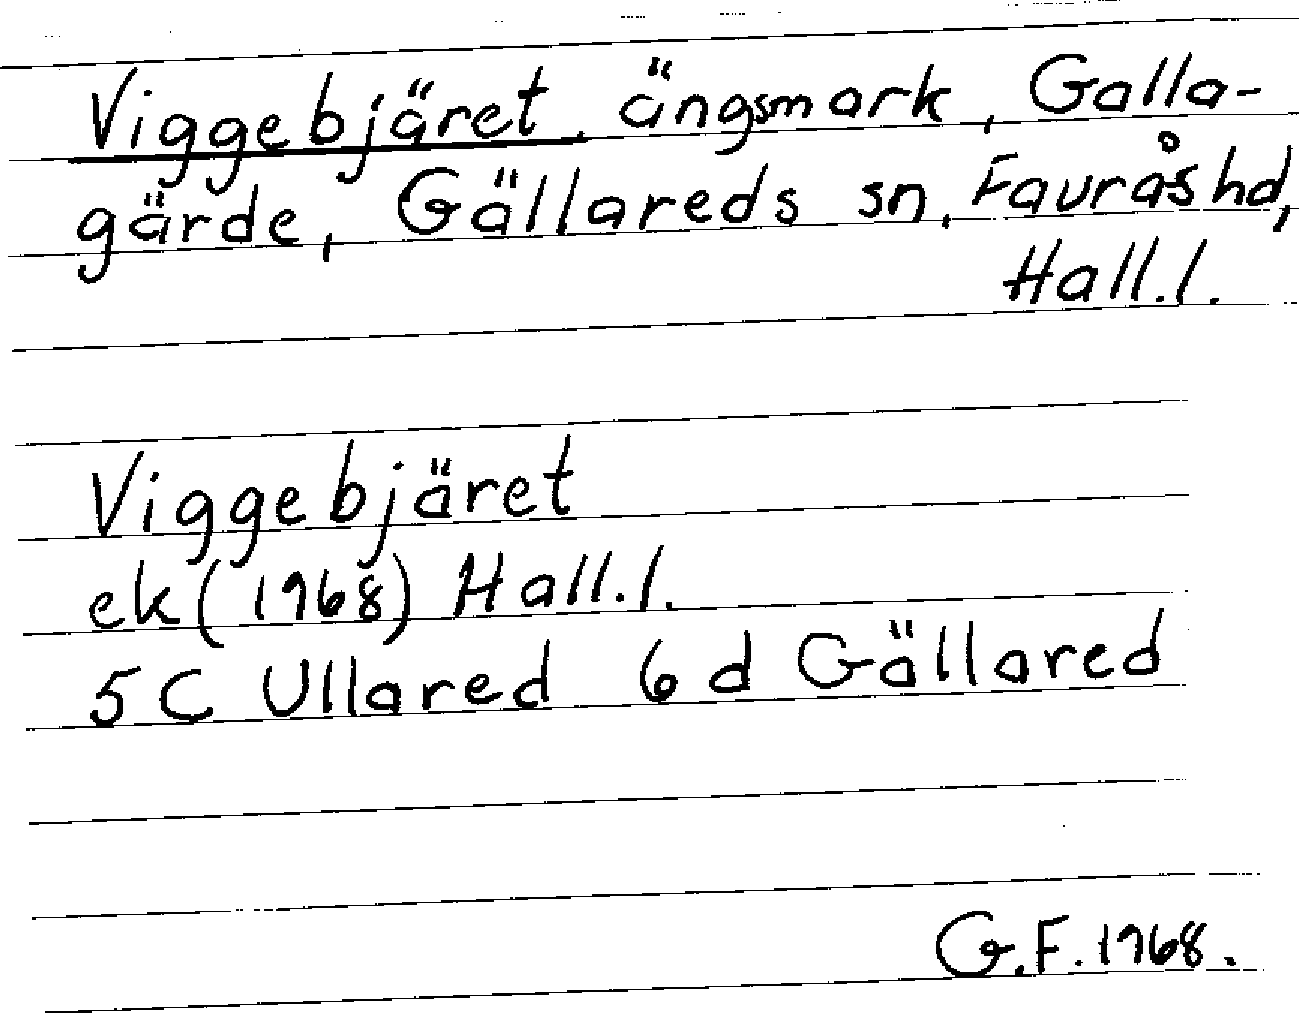 Viggebjäret, ängsmark, Galla-
gärde, Gällareds sn, Fauråshd,
Hall.l.
Viggebjäret
ek (1968) Hall.l.
5C Ullared 6d Gällared
G.F. 1968.